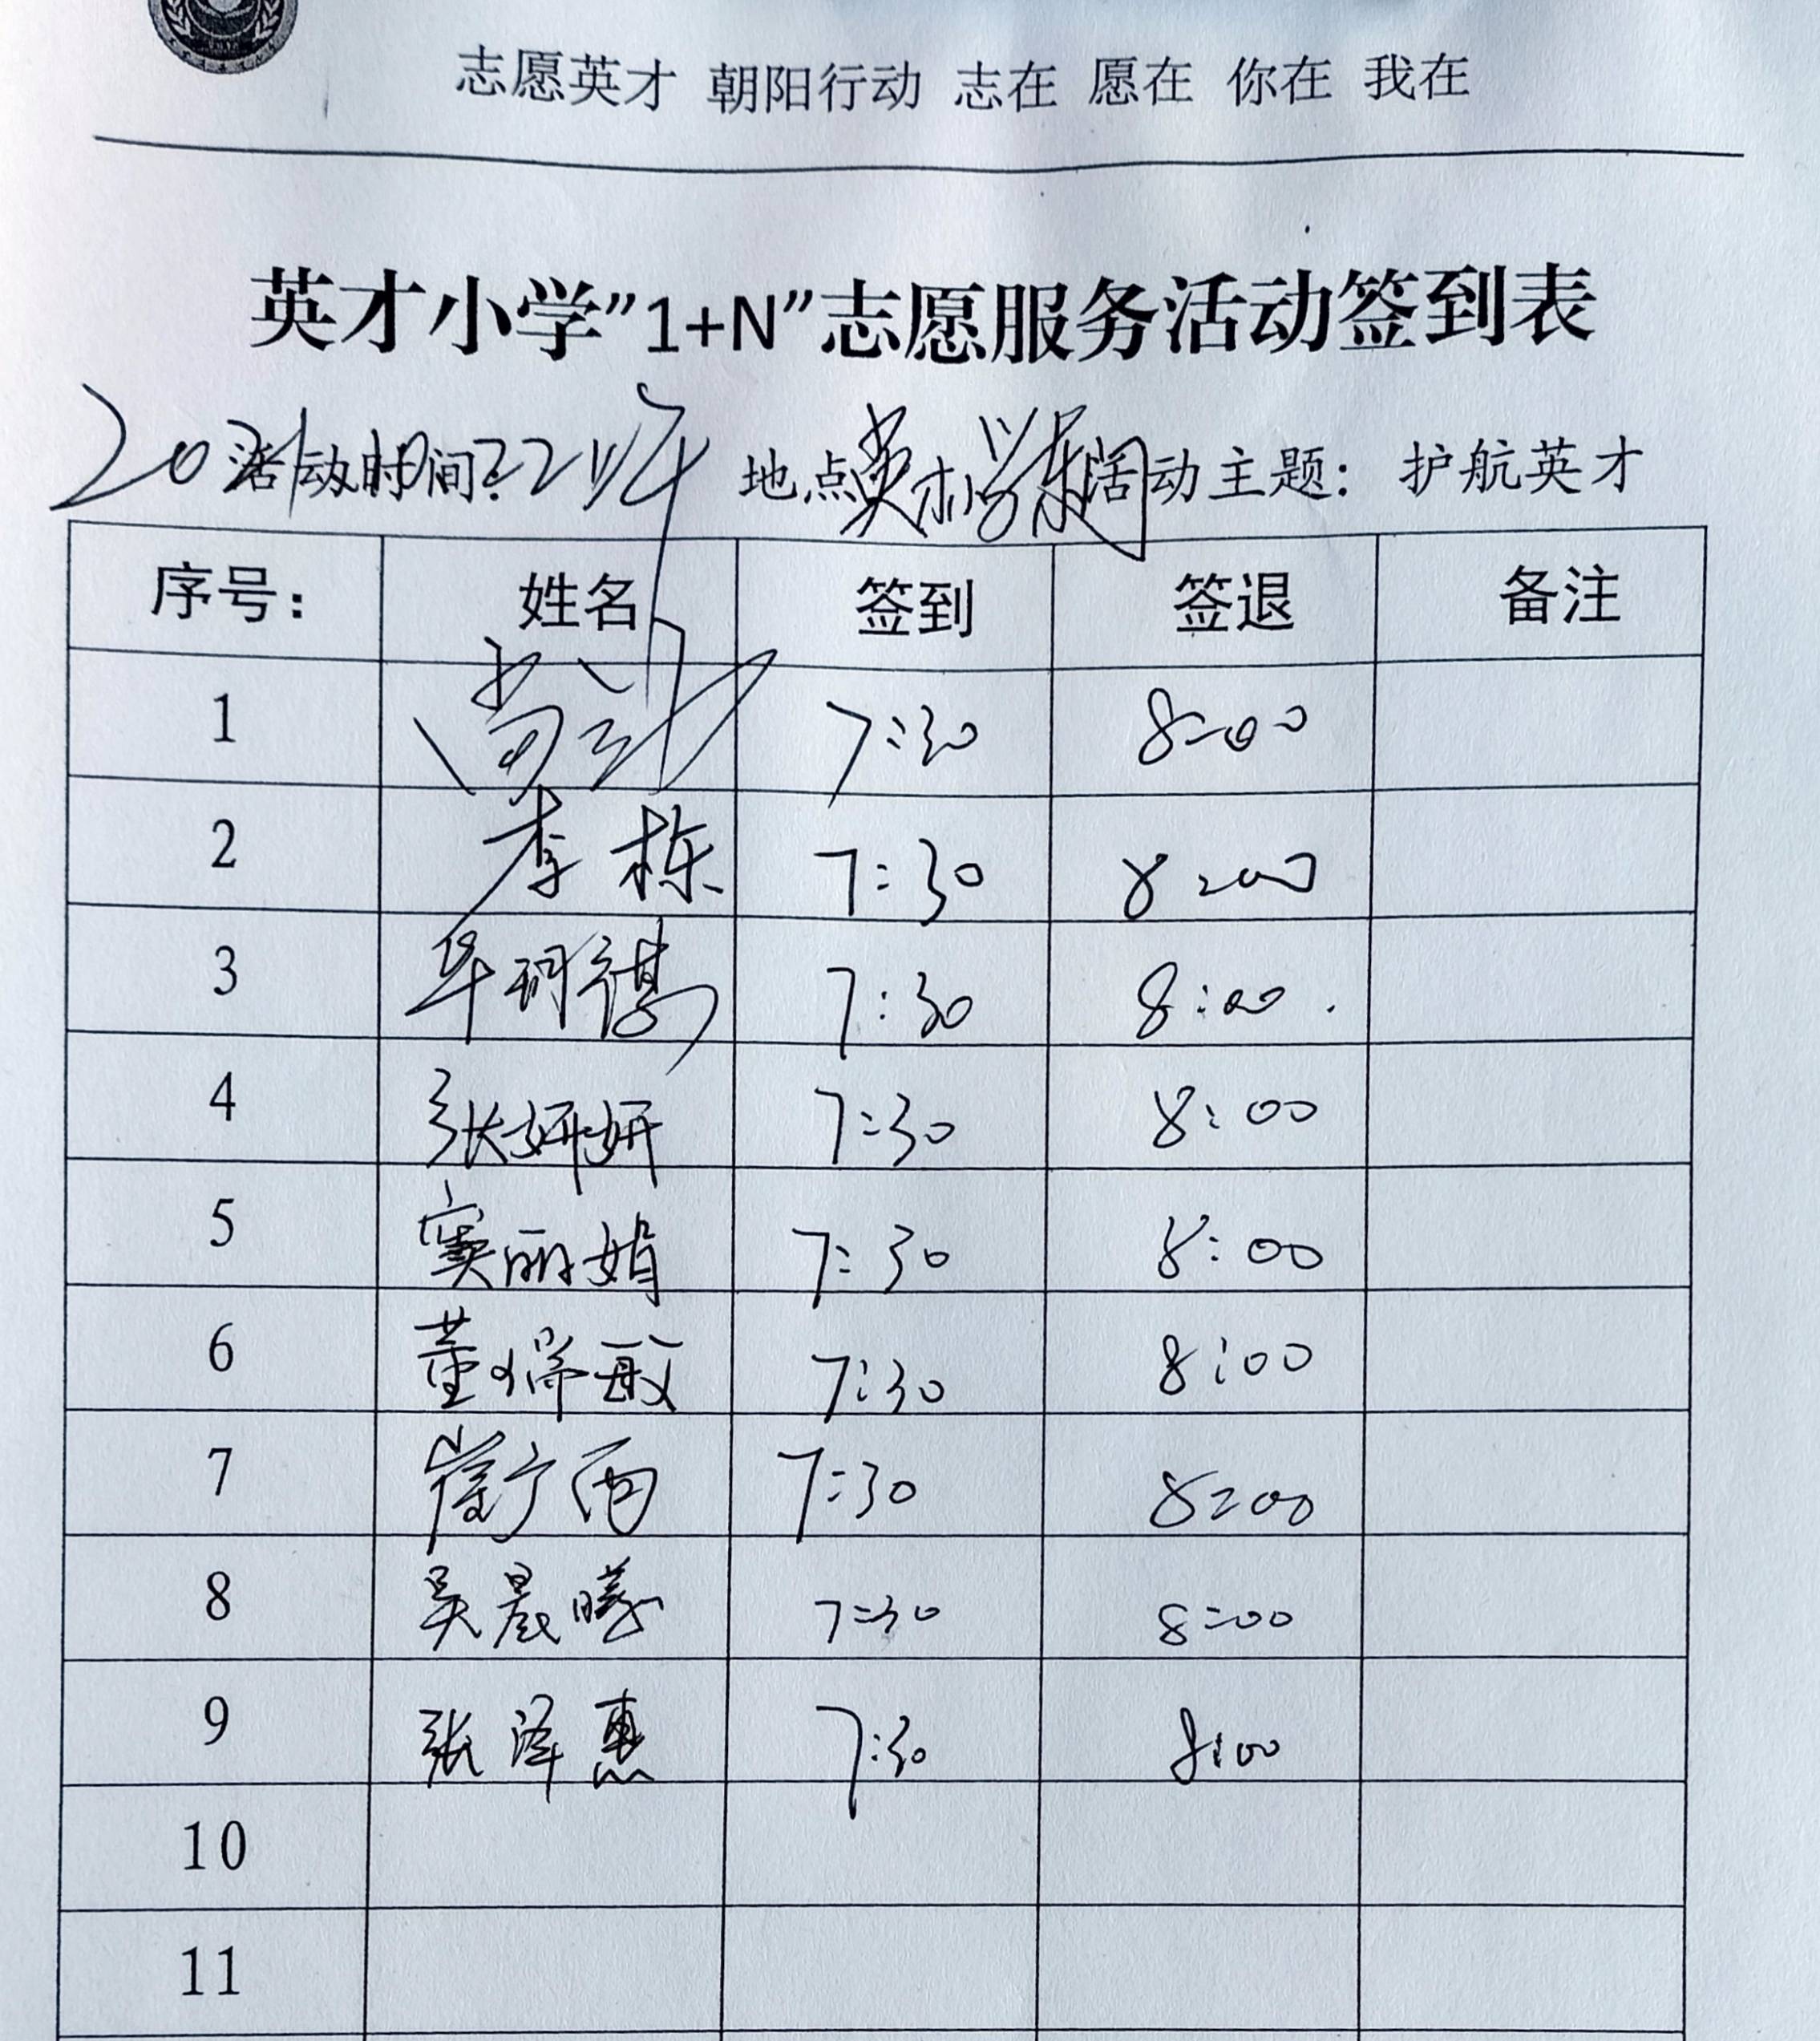 志愿英才 朝阳行动 志在 愿在 你在 我在
英才小学”1+N”志愿服务活动签到表
活动时间: 地点 英才小学东门 活动主题: 护航英才
序号: 姓名 签到 签退 备注
1 7:30 8:00
2 李栋 7:30 8:00
3 7:30 8:00
4 张妍妍 7:30 8:00
5 窦丽娟 7:30 8:00
6 董瑞敏 7:30 8:00
7 崔宁雨 7:30 8:00
8 吴晨曦 7:30 8:00
9 张泽惠 7:30 8:00
10
11